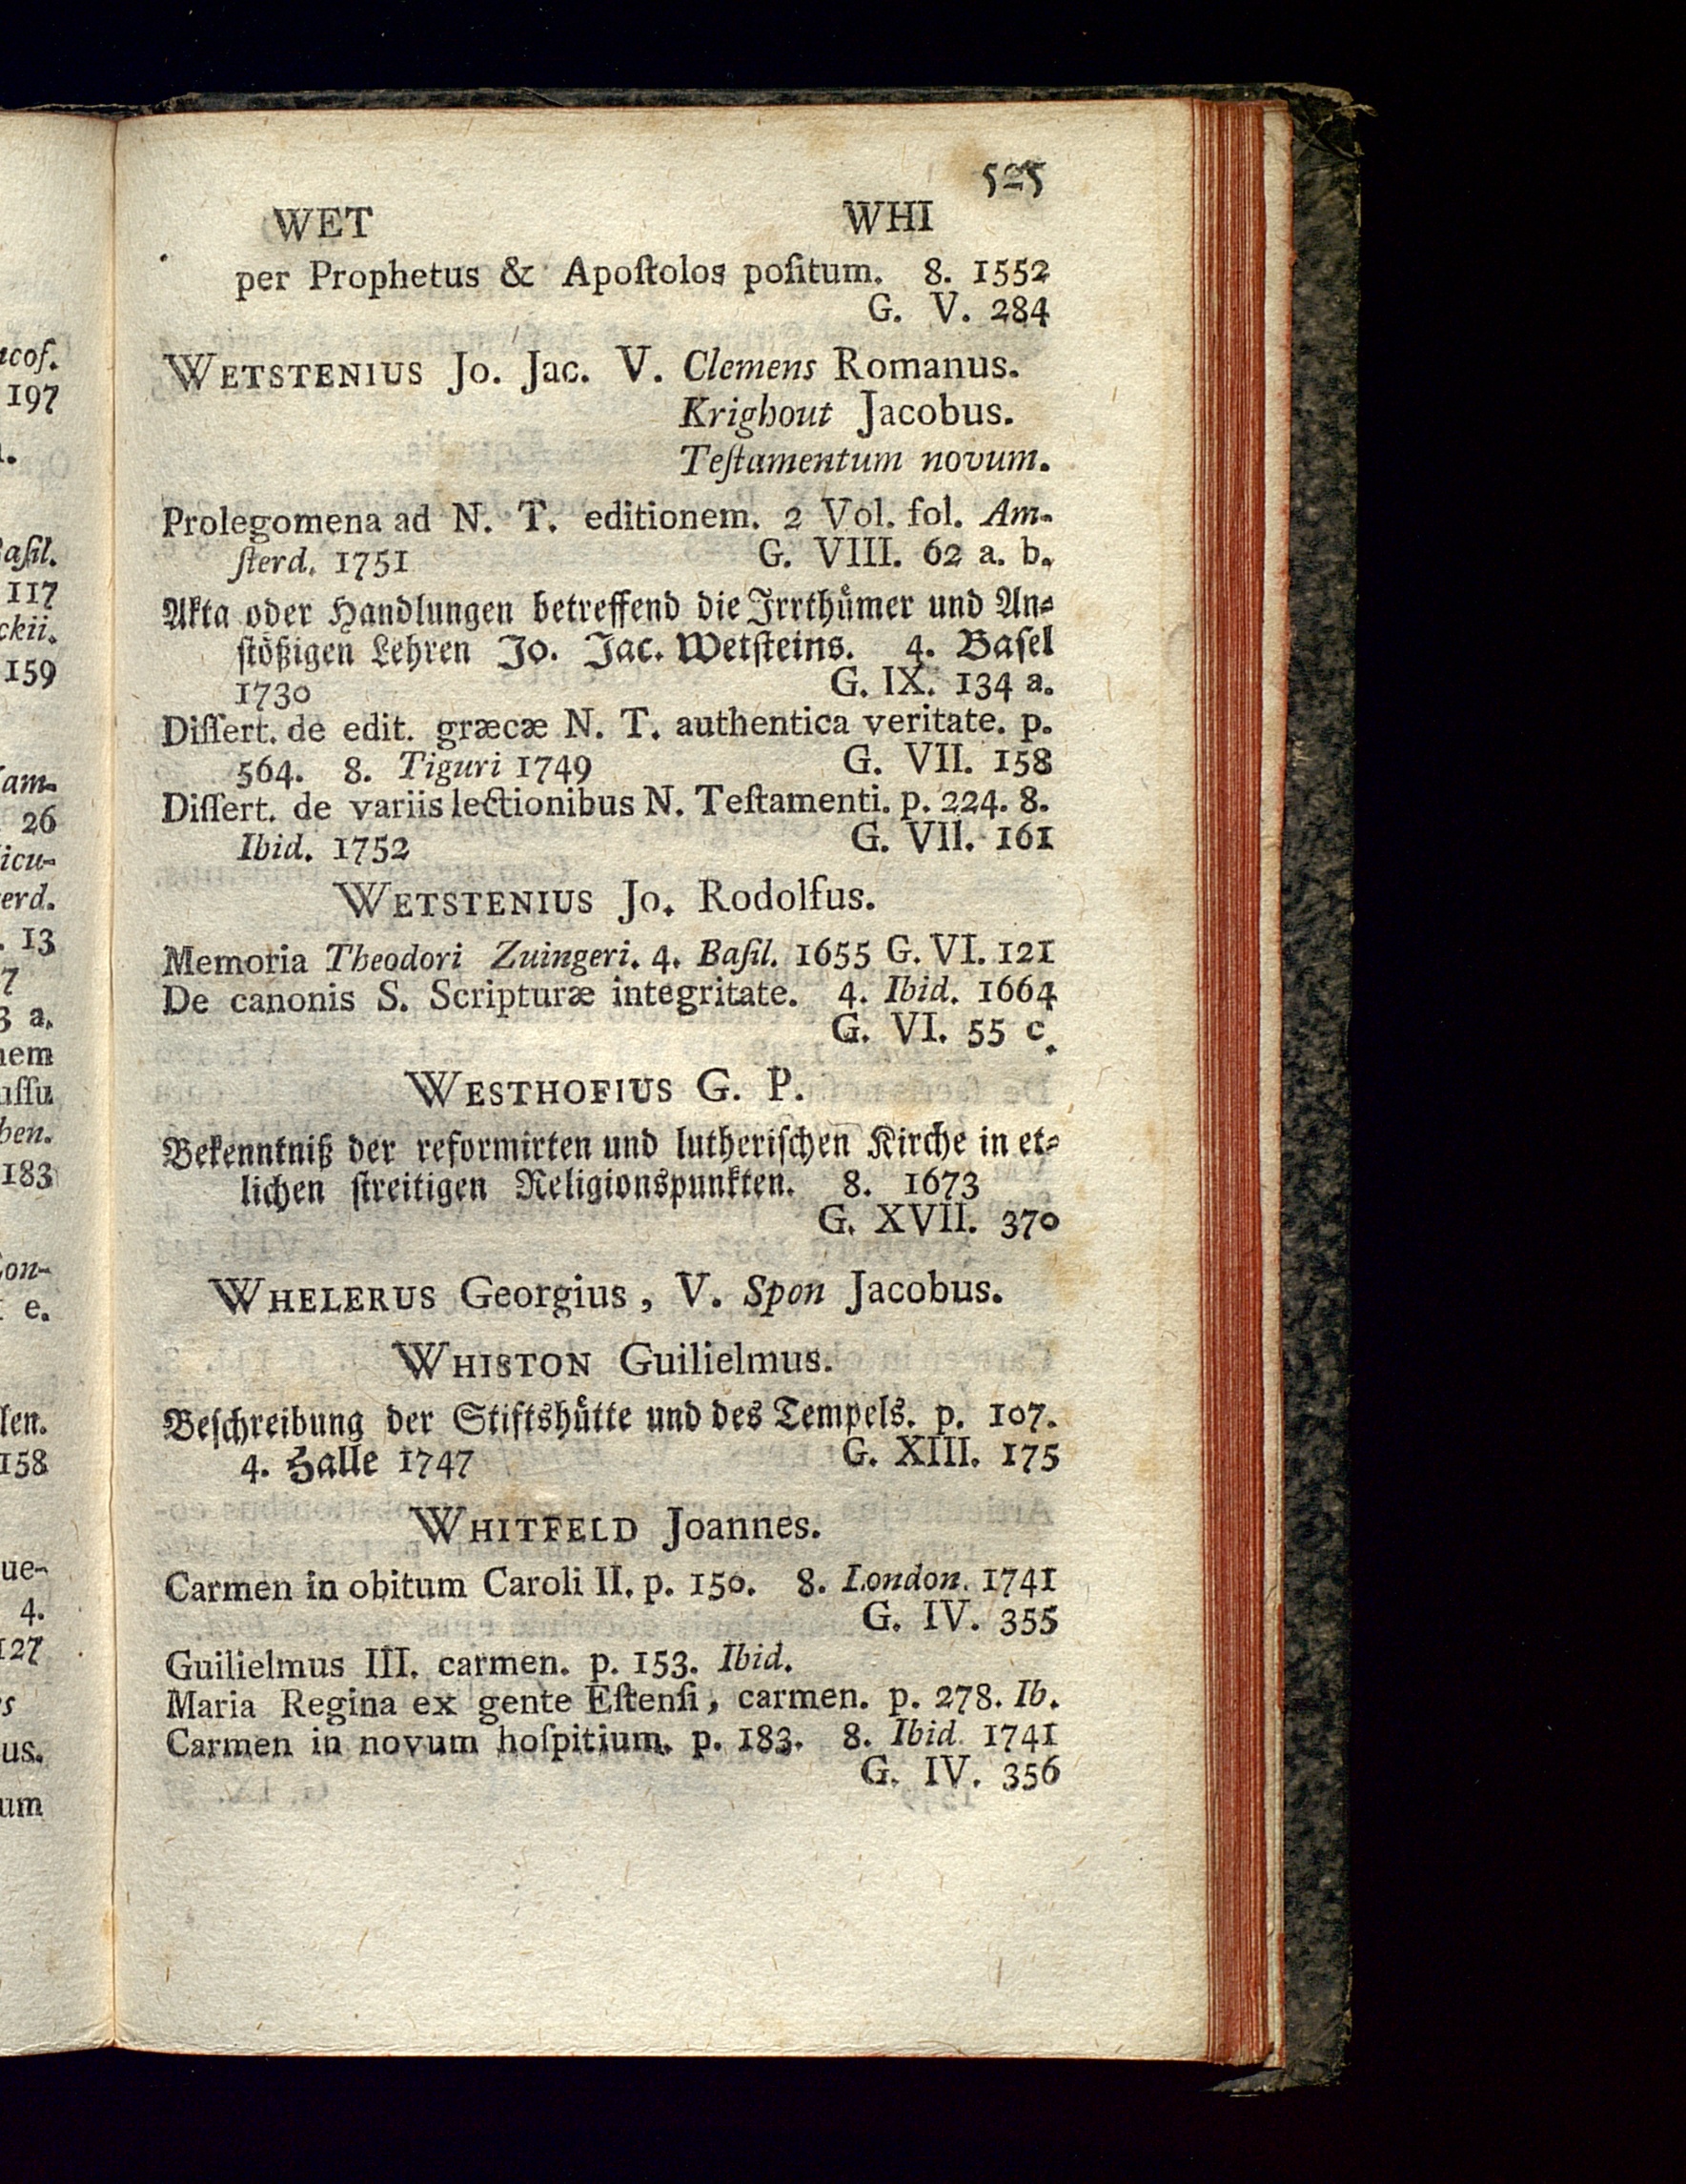 525
WET WHI
per Prophetus & Apoſtolos poſitum. 8. 1552
G. V. 284
WETSTENIUS Jo. Jac. V. Clemens Romanus.
Krighout Jacobus.
Teſtamentum novum.
Prolegomena ad N. T. editionem. 2 Vol. fol. Am-
ſterd. 1751 G. VIII. 62 a. b.
Akta oder Handlungen betreffend die Irrthůmer und An-
ſtößigen Lehren Jo. Jac. Wetſteins. 4. Baſel
1730 G. IX. 134 a.
Diſſert. de edit. græcæ N. T. authentica veritate. p.
564. 8. Tiguri 1749 G. VII. 158
Diſſert. de variis lectionibus N. Teſtamenti. p. 224. 8.
Ibid. 1752 G. VII. 161
WETSTENIUS Jo. Rodolfus.
Memoria Theodori Zuingeri. 4. Baſil. 1655 G. VI. 121
De canonis S. Scripturæ integritate. 4. Ibid. 1664
G. VI. 55 c.
WESTHOFIUS G. P.
Bekenntniß der reformirten und lutheriſchen Kirche in et-
lichen ſtreitigen Religionspunkten. 8. 1673
G. XVII. 370
WHELERUS Georgius, V. Spon Jacobus.
WHISTON Guilielmus.
Beſchreibung der Stiftshůtte und des Tempels. p. 107.
4. Halle 1747 G. XIII. 175
WHITFELD Joannes.
Carmen in obitum Caroli II. p. 150. 8. London. 1741
G. IV. 355
Guilielmus III. carmen. p. 153. Ibid.
Maria Regina ex gente Eſtenſi, carmen. p. 278. Ib.
Carmen in novum hoſpitium. p. 183. 8. Ibid. 1741
G. IV. 356